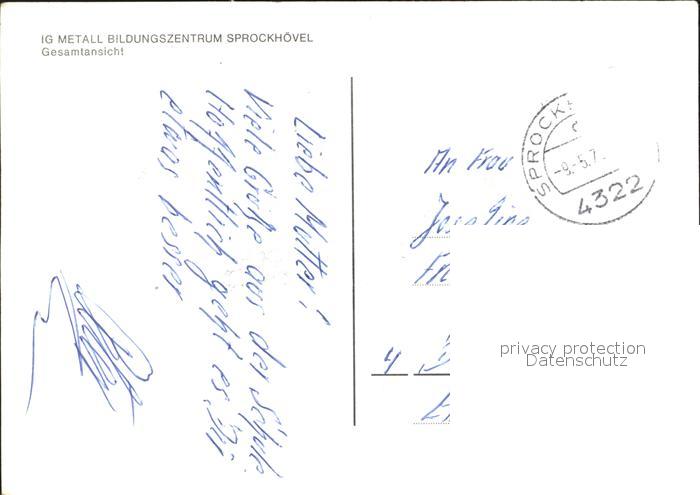 IG METALL BILDUNGSZENTRUM SPROCKHÖVEL
Gesamtansicht
Liebe Mutter!
Viele Grüße aus der Schule.
Hoffentlich geht es Dir
etwas besser
An Frau
4
SPROCKH
-9.-5.7
4322
privacy protection
Datenschutz